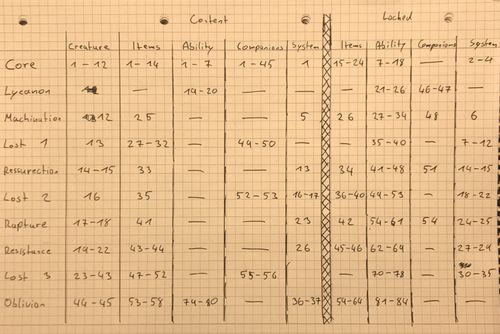 Content Locked
Creature Items Ability Companions System Items Ability Companions System
Core 1-12 1-14 1-7 1-45 1 15-24 7-18 — 2-4
Lycanon — 19-20 — — 21-26 46-47 —
Machination 12 25 — — 5 26 27-34 48 6
Lost 1 13 27-32 — 49-50 — — 35-40 — 7-12
Ressurection 14-15 33 — — 13 34 41-48 51 14-15
Lost 2 16 35 — 52-53 16-17 36-40 49-53 — 18-22
Rapture 17-18 41 — — 23 42 54-61 54 24-25
Resistance 19-22 43-44 — — 26 45-46 62-69 — 27-29
Lost 3 23-43 47-52 — 55-56 — — 70-78 — 30-35
Oblivion 44-45 53-58 79-80 — 36-37 59-64 81-84 — —